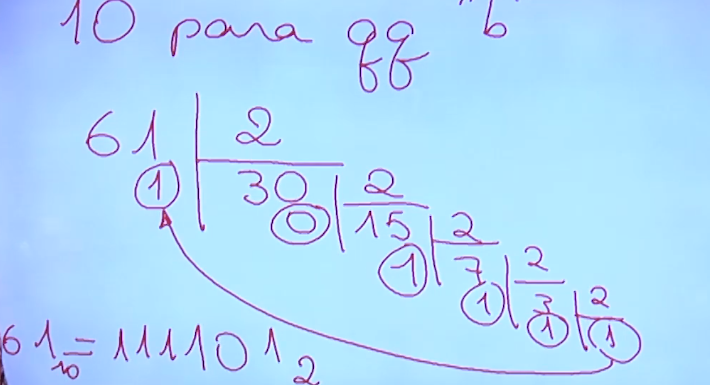 10 para qq "b"
61 2
1 30 2
0 15 2
1 7 2
1 3 2
1 1
61₁₀ = 111101₂